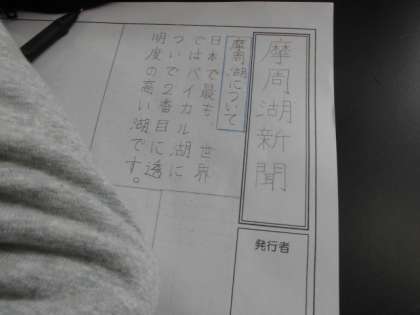 摩周湖新聞
発行者
摩周湖について
日本で最も 世界
ではバイカル湖に
ついで2番目に透
明度の高い湖です。